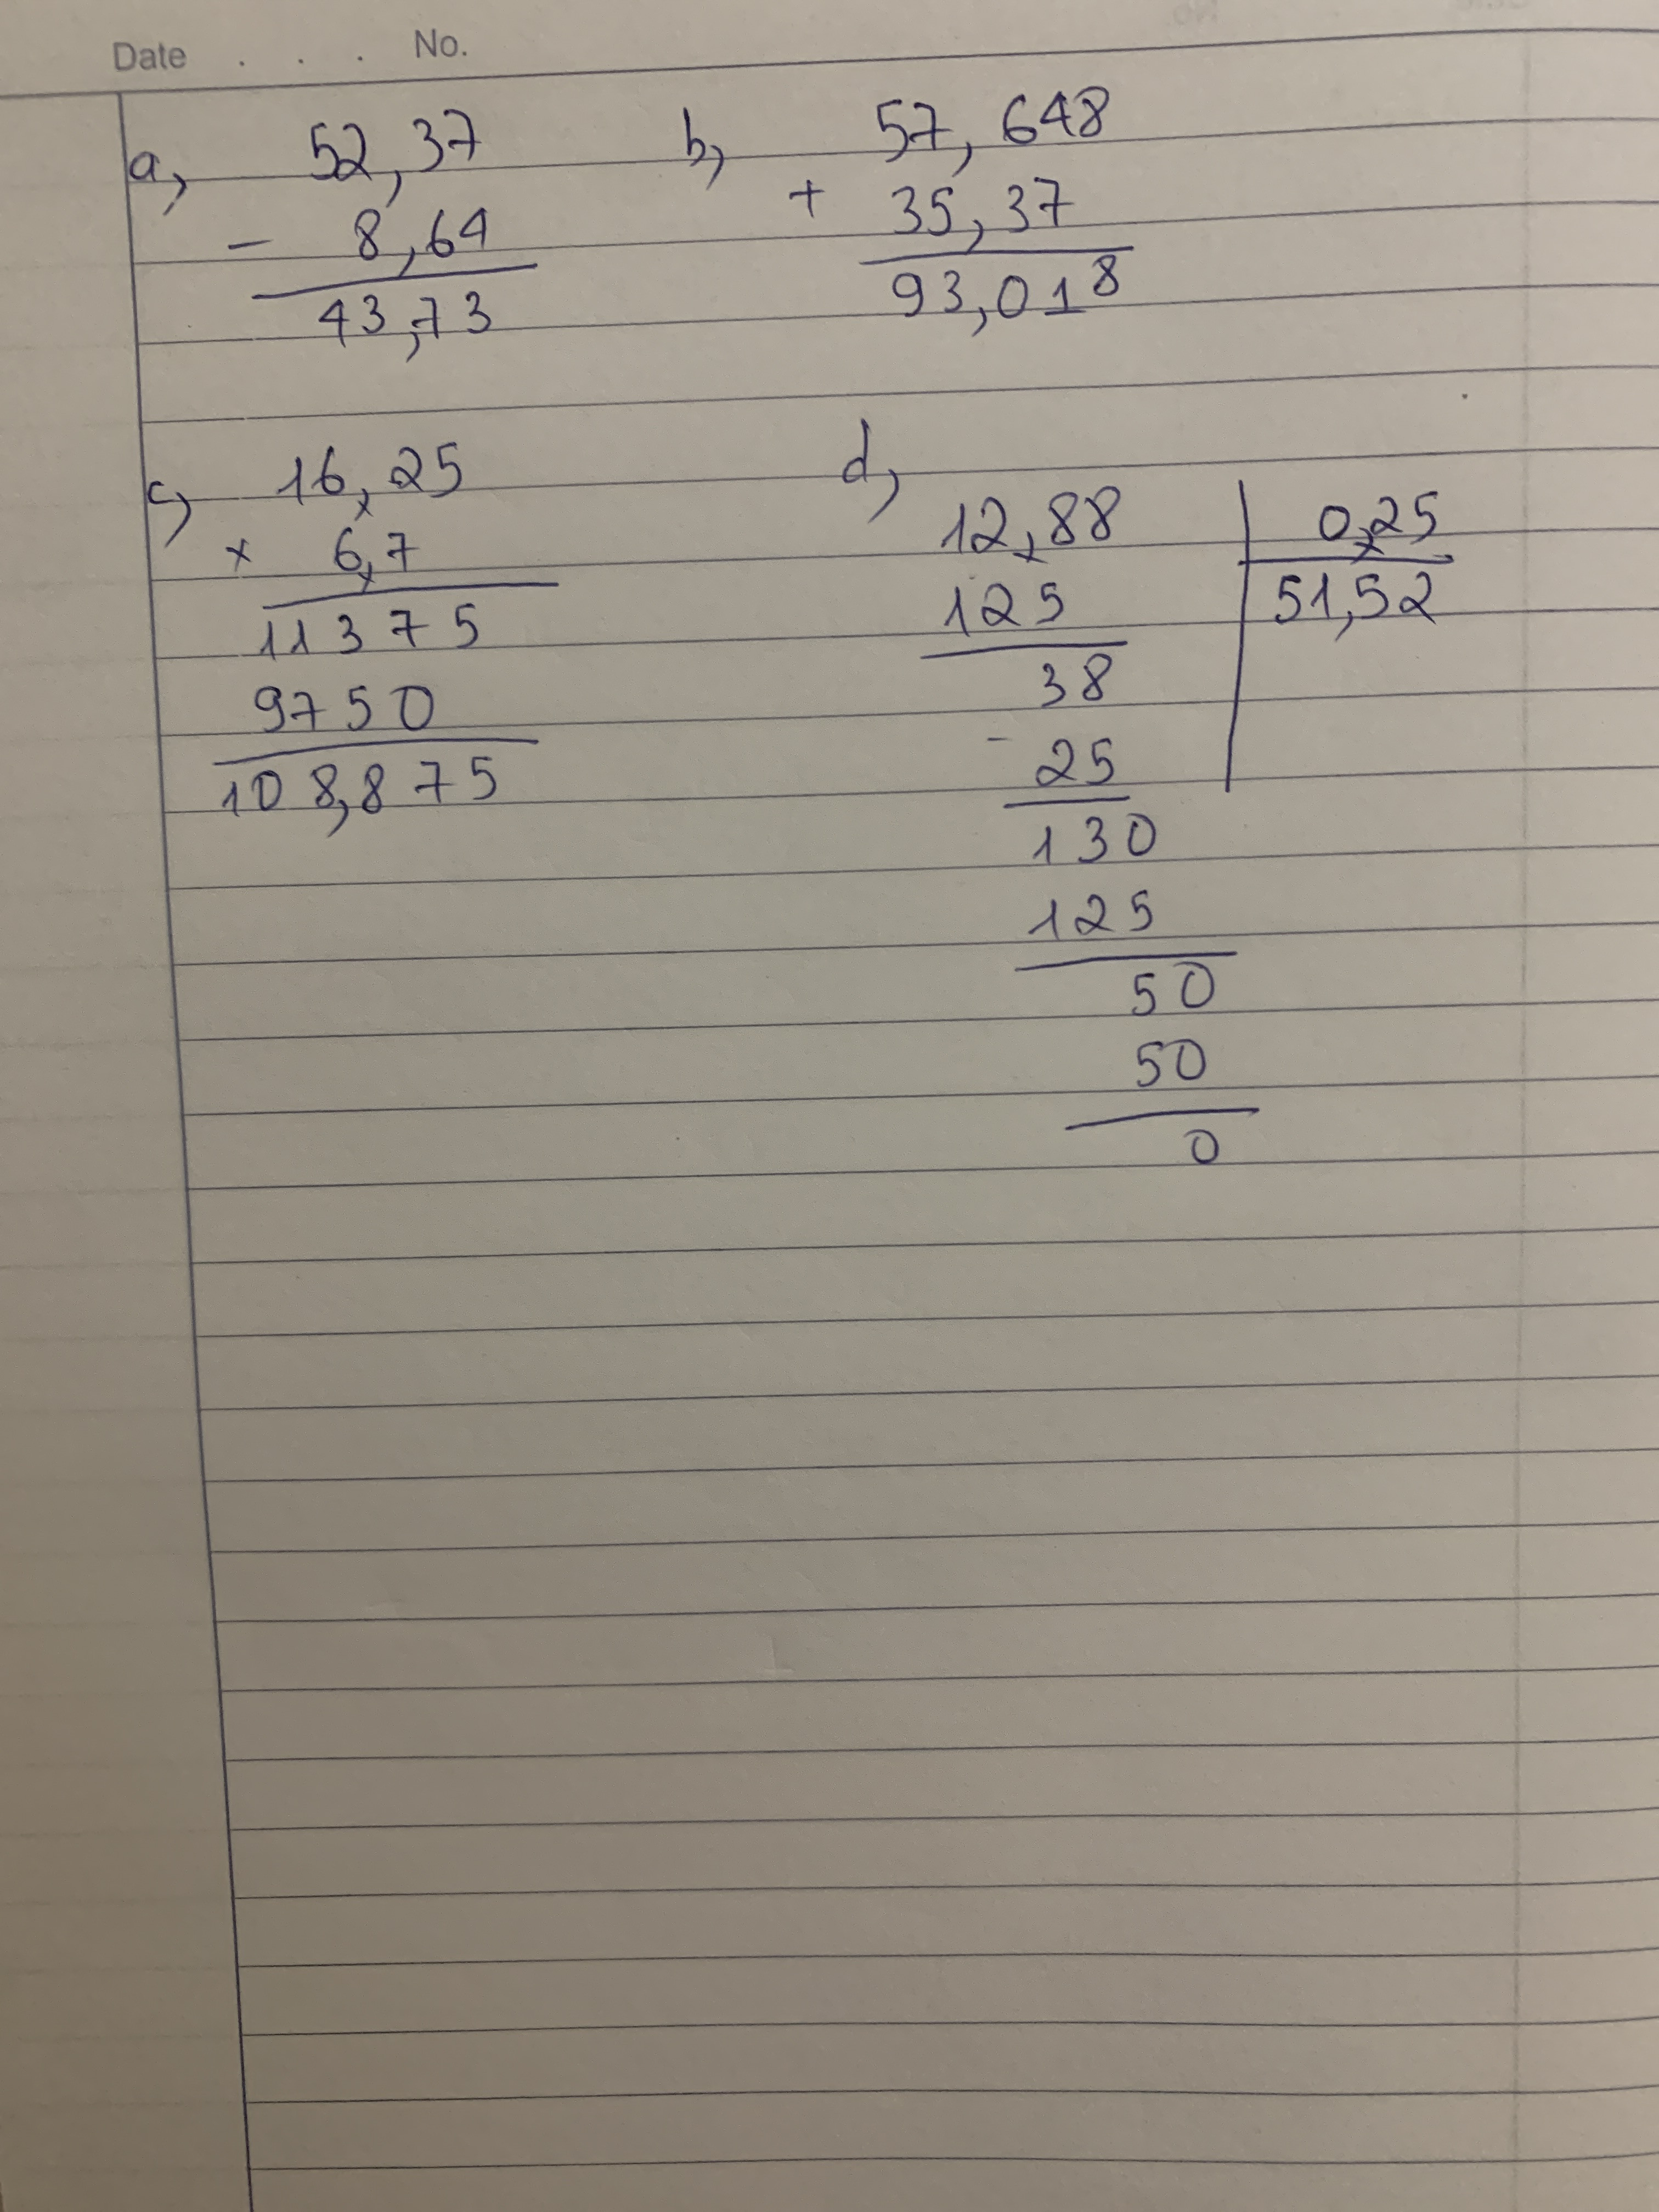 Date . . . No.
a, 52,37
- 8,64
43,73
b, 57,648
+ 35,37
93,018
c, 16,25
x 6,7
11375
9750
108,875
d, 12,88 0,25
125 51,52
38
- 25
130
125
50
50
0